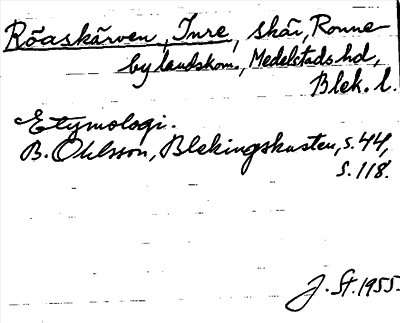 Röaskärven, Inre, skär, Ronne-
by landskom., Medelstads hd,
Blek. l.
Etymologi.
B. Ohlsson, Blekingskusten, s. 44,
s. 118.
J. St. 1955.